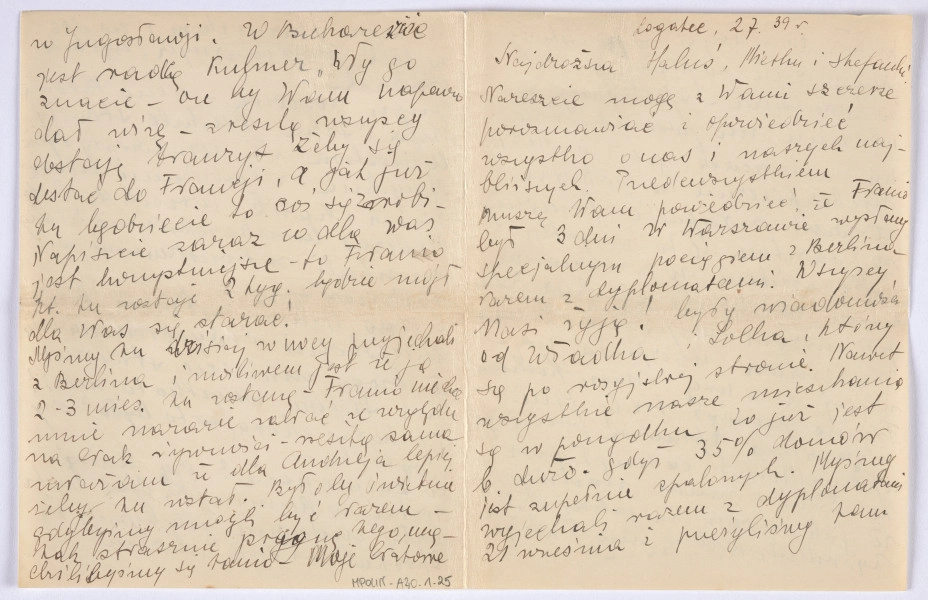 Logatec, 27. 39 r.
Najdrożsna Haluś, Mietku i Stefanku
Nareszcie mogę z Wami szczerze
porozmawiać i opowiedzieć
wszystko o nas i naszych naj-
bliższych. Przedewszystkiem
muszę Wam powiedzieć, że Franio
był 3 dni w Warszawie wysłany
specjalnym pociągiem z Berlina
razem z dyplomatami. Wszyscy
Nasi żyją! były wiadomości
od Władka i Lolka, który
są po rosyjskiej stronie. Nawet
wszystkie nasze mieszkania
są w porządku, co już jest
b. dużo. gdyż 35% domów
jest zupełnie spalonych. Myśmy
wyjechali razem z dyplomatami
21 września i przeżyliśmy tam
w Jugosławji. W Bukareszcie
jest radcą Kulmer, Wy go
znacie – on by Wam napewno
dał wizę – zresztą wszyscy
dostają tranzyt żeby się
dostać do Francji, a jak już
tu będziecie to coś się zrobi.
Napiszcie zaraz co dla Was
jest korzystniejsze – to Franio
kt. tu zostaje 2 tyg. będzie mógł
dla Was się starać!
Myśmy tu dzisiaj w nocy przyjechali
z Berlina i możliwem jest że ja
2-3 mies. tu zostanę – Franio nie chce
mnie narazie zabrać ze względu
na brak żywności – zresztą sama
uważam że dla Andrzeja lepiej
żeby tu został. Byłoby świetnie
gdybyśmy mogli być razem –
tak strasznie pragnę tego,
chcielibyśmy się Moje bratowe
MPOLIK-A30-1-25